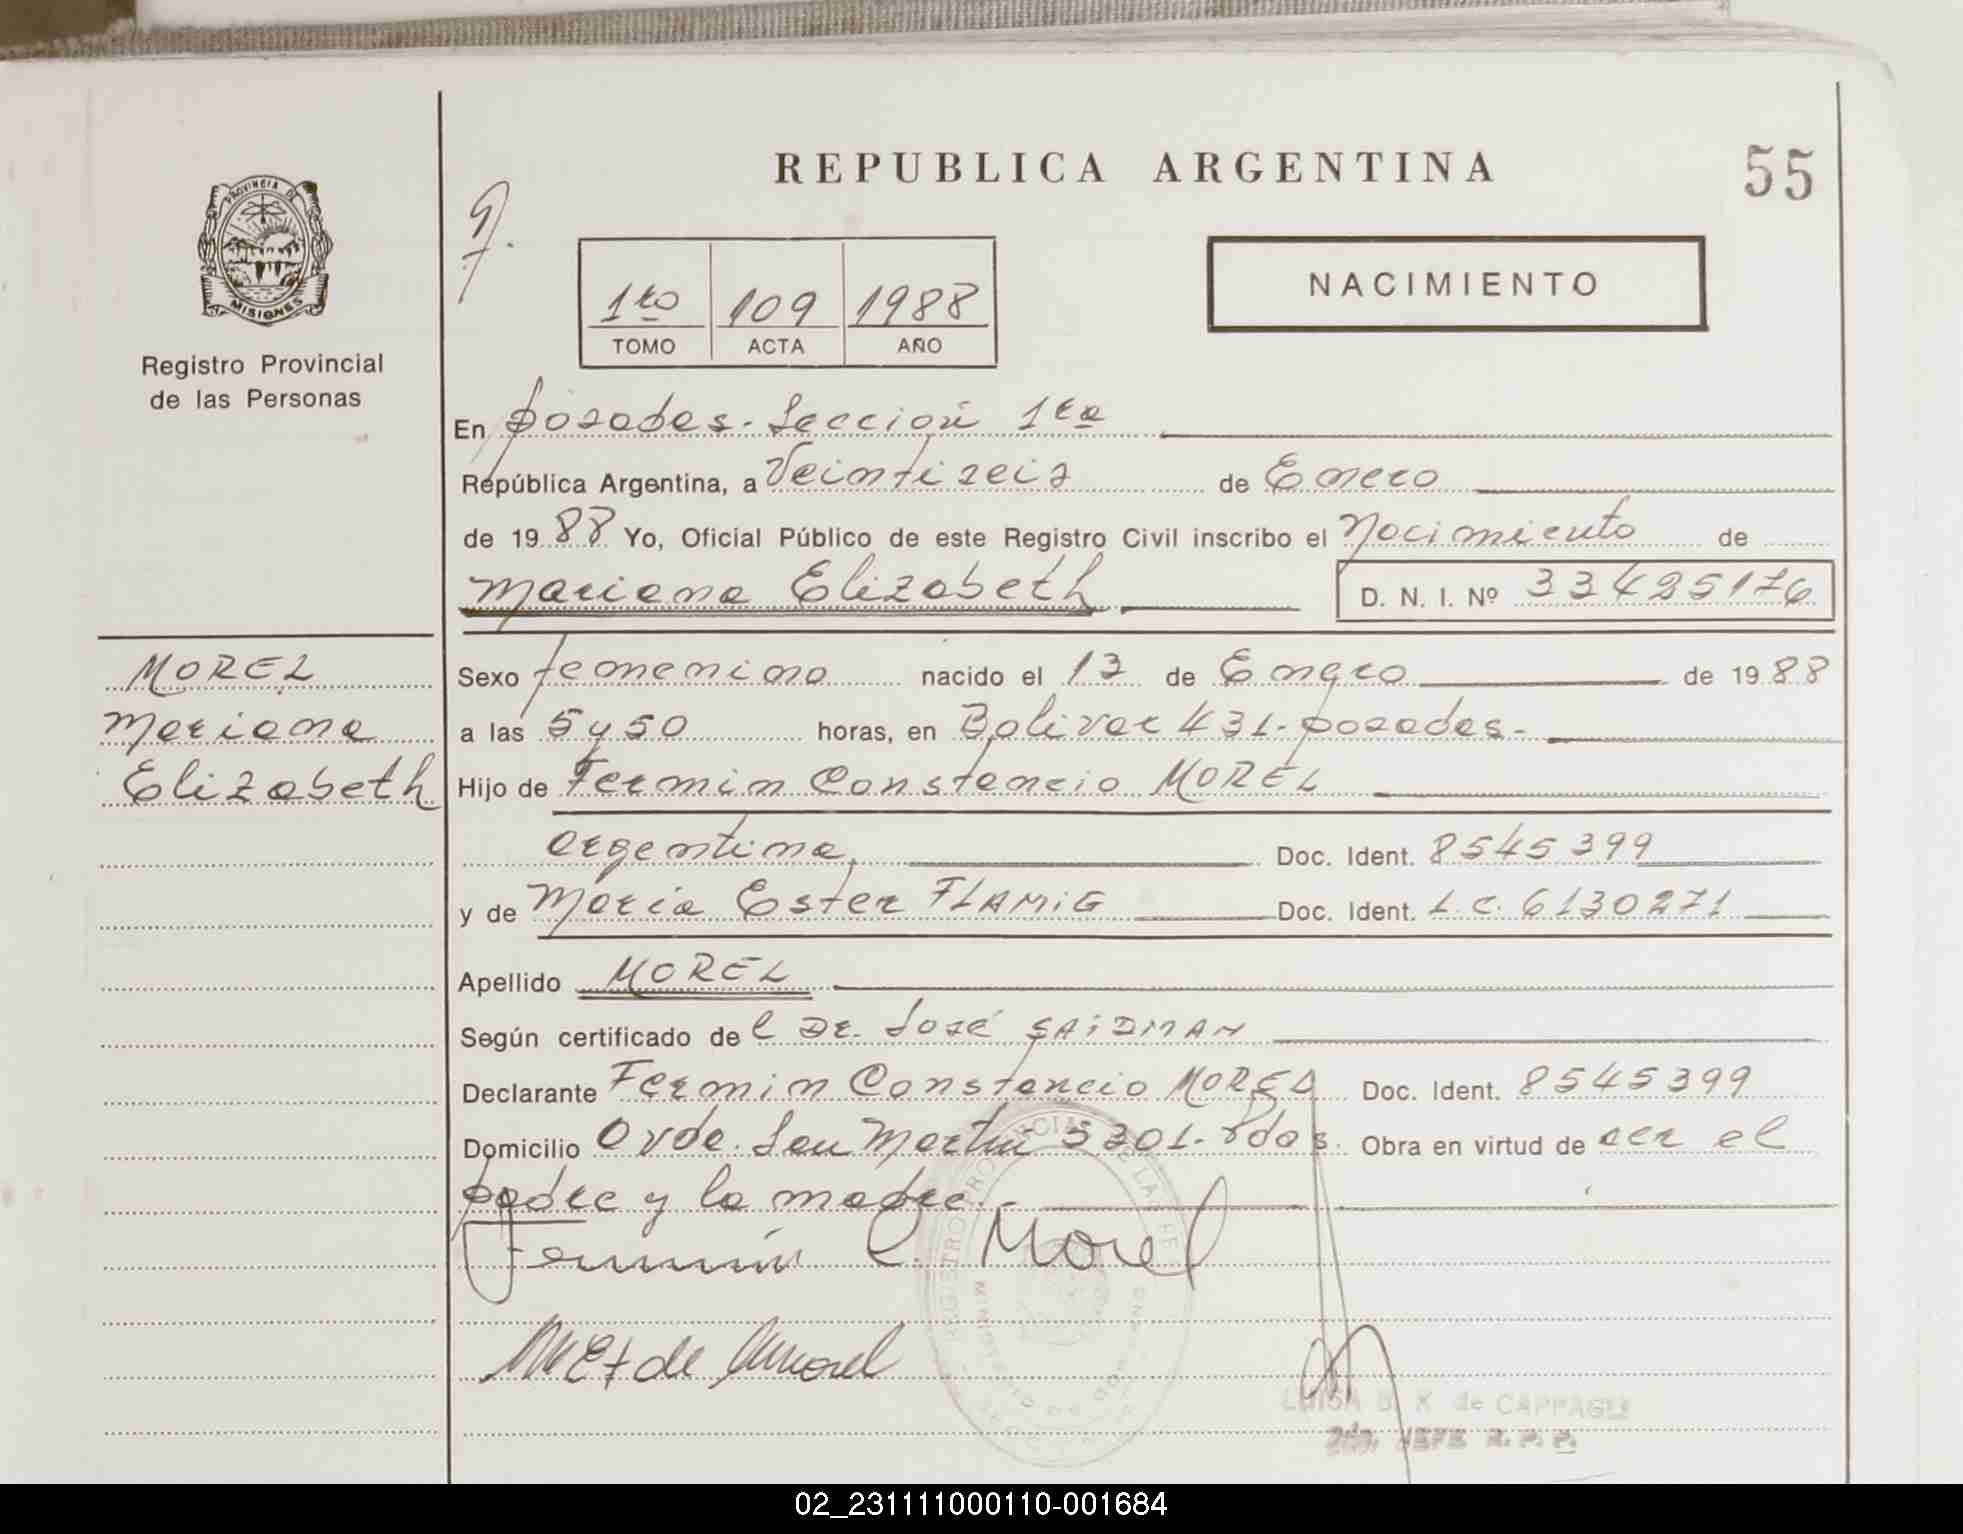 REPUBLICA ARGENTINA
55
PROVINCIA DE
MISIONES
Registro Provincial
de las Personas
1ro 109 1988
TOMO ACTA AÑO
NACIMIENTO
En posadas. Sección 1ra
República Argentina, a Veintiseis de Enero
de 1988 Yo, Oficial Público de este Registro Civil inscribo el Nacimiento de
Mariana Elizabeth D. N. I. Nº 33425176
MOREL
Mariana
Elizabeth
Sexo femenino nacido el 13 de Enero de 1988
a las 5 y 50 horas, en Bolivar 431-posadas.-
Hijo de Fermin Constancio MOREL
argentina, Doc. Ident. 8545399
y de Maria Ester FLAMiG Doc. Ident. L.C. 6130271
Apellido MOREL
Según certificado del Dr. José SAiDMAN
Declarante Fermin Constancio MOREL Doc. Ident. 8545399
Domicilio Avda. San Martin 5301-Pdas. Obra en virtud de ser el
padre y la madre.-
Fermín C. Morel
de Morel
LUISA B. K de CAPPAGLI
JEFE R. P. P.
02_231111000110-001684